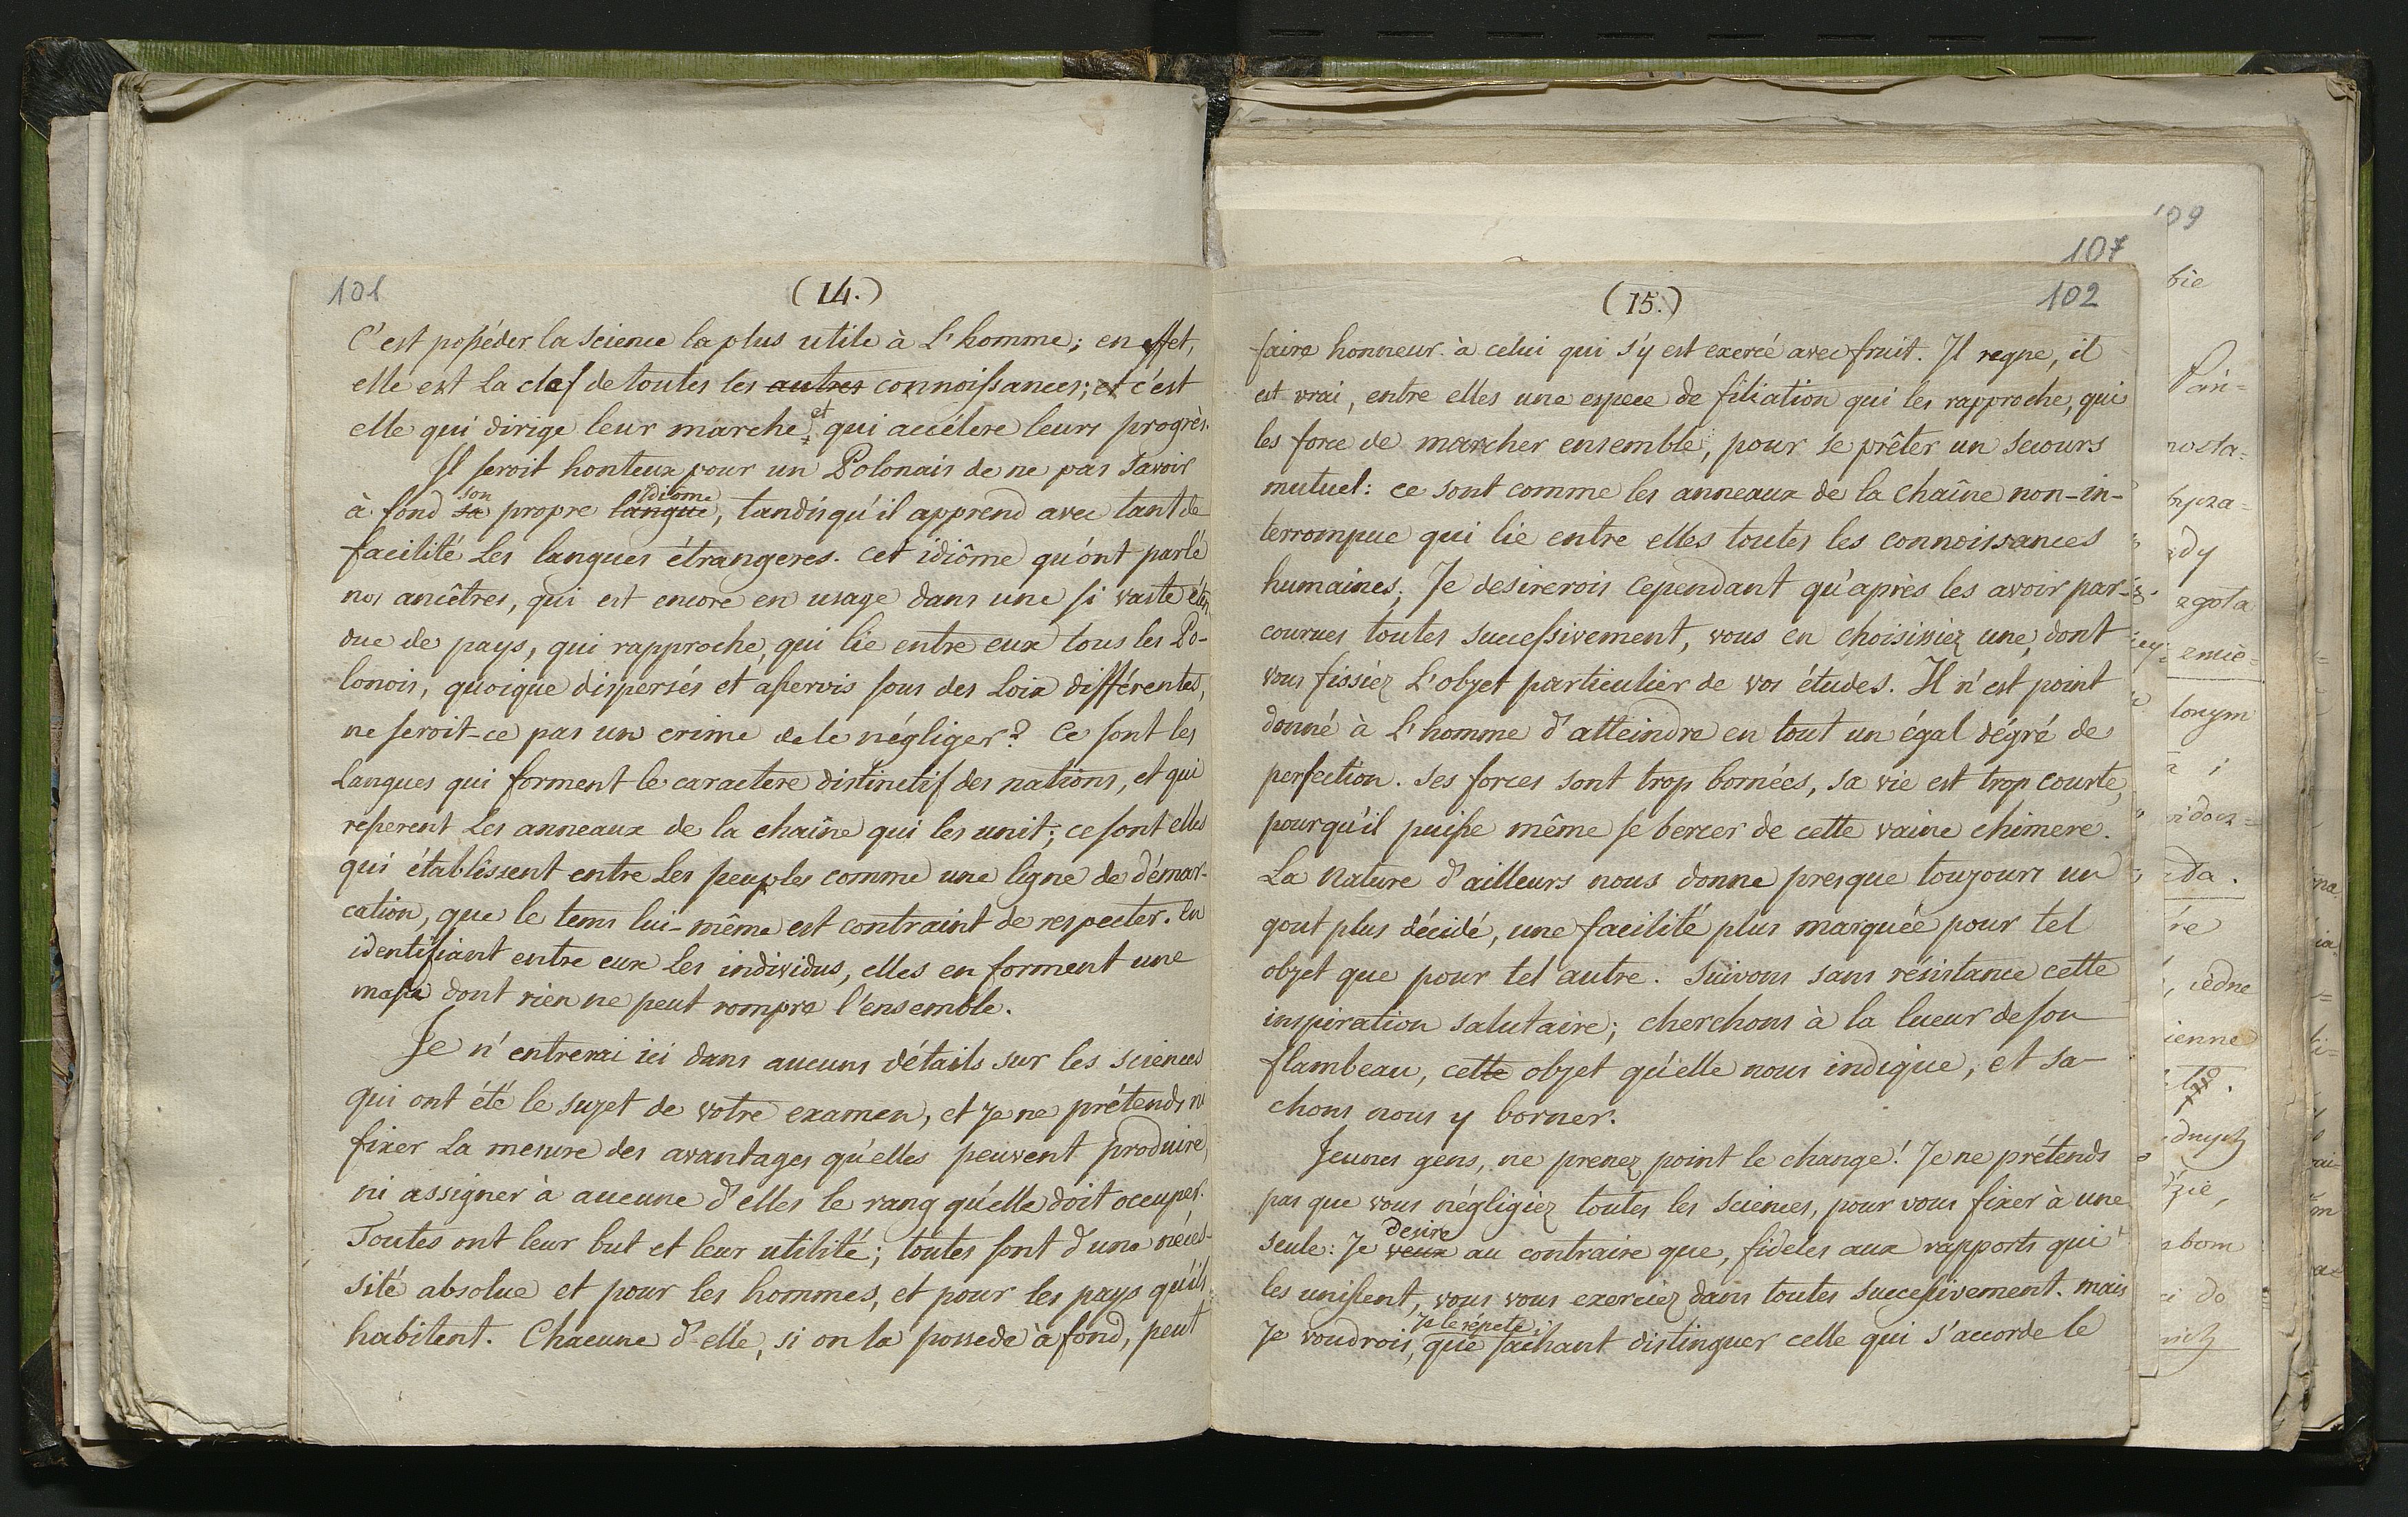 101
(14.)
C'est posséder la science la plus utile à L'homme; en effet,
elle est la clef de toutes les autres connoissances; et c'est
elle qui dirige leur marche, et qui accélere leurs progrès.
Il seroit honteux pour un Polonais de ne pas savoir
à fond sa son propre langue idiôme, tandisqu'il apprend avec tant de
facilité Les langues étrangeres. cet idiôme qu'ont parlé
nos ancêtres, qui est encore en usage dans une si vaste éten
due de pays, qui rapproche, qui lie entre eux tous les Po-
lonois, quoique dispersés et asservis sous des Loix différentes,
ne seroit-ce pas un crime de le négliger? Ce sont les
Langues qui forment le caractere distinctif des nations, et qui
resserent Les anneaux de la chaîne qui les unit; ce sont elles
qui établissent entre Les peuples comme une ligne de démar-
cation, que le tems lui-même est contraint de respecter. En
identifiant entre eux Les individus, elles en forment une
masse dont rien ne peut rompre l'ensemble.
Je n'entrerai ici dans aucuns détails sur les sciences
qui ont été le sujet de votre examen, et Je ne prétends ni
fixer La mesure des avantages qu'elles peuvent produire,
ni assigner à aucune d'elles le rang qu'elle doit occuper.
Toutes ont leur but et leur utilité; toutes sont d'une néces-
sité absolue et pour les hommes, et pour les pays qu'ils
habitent. Chacune d'elle, si on la possede à fond, peut
107
102
(15.)
faire honneur à celui qui s'y est exercé avec fruit. Il regne, il
est vrai, entre elles une espece de filiation qui les rapproche, qui
les force de marcher ensemble, pour se prêter un secours
mutuel: ce sont comme les anneaux de la chaîne non-in-
terrompue qui lie entre elles toutes les connoissances
humaines. Je desirerois cependant qu'après les avoir par-
courues toutes successivement, vous en choisissiez une, dont
vous fissiez L'objet particulier de vos études. Il n'est point
donné à L'homme d'atteindre en tout un égal dégré de
perfection. Ses forces sont trop bornées, sa vie est trop courte,
pourqu'il puisse même se bercer de cette vaine chimere.
La Nature d'ailleurs nous donne presque toujours un
gout plus décidé, une facilité plus marquée pour tel
objet que pour tel autre. Suivons sans résistance cette
inspiration salutaire; cherchons à la lueur de son
flambeau, cette objet qu'elle nous indique, et sa-
chons nous y borner.
Jeunes gens, ne prenez point le change! Je ne prétends
pas que vous négligiez toutes les sciences, pour vous fixer à une
seule: Je veux desire au contraire que, fideles aux rapports qui
les unissent, vous vous exerciez dans toutes successivement. mais
Je voudrois, Je le répete, que sachant distinguer celle qui s'accorde le
109
bie
zgota
lonym
da.
iedne
ienne
dnych
bom